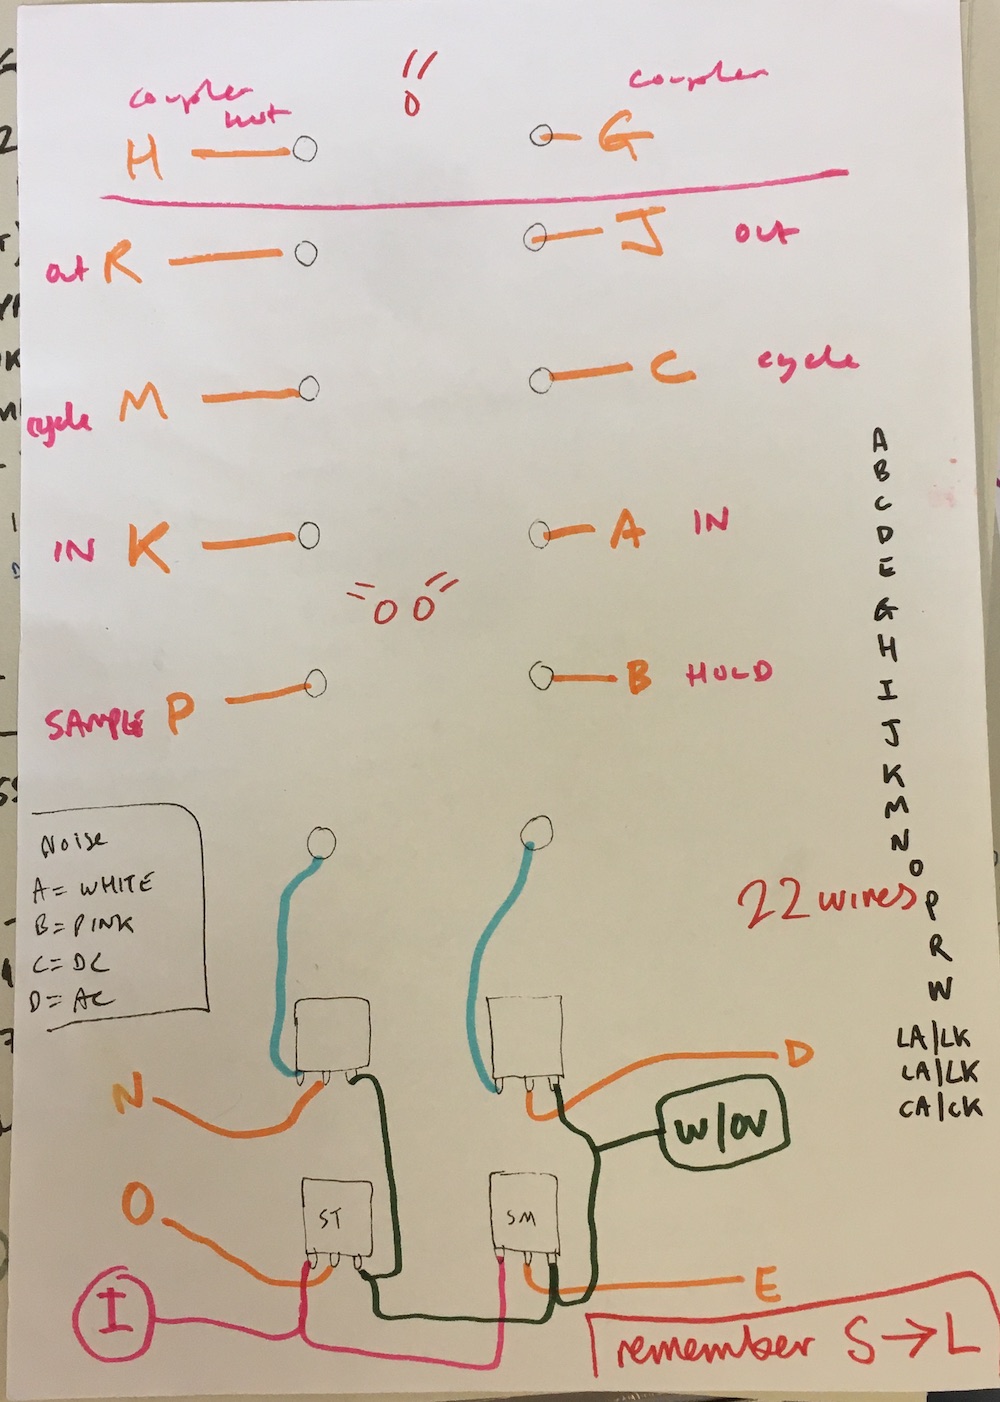 coupler
out
H
coupler
G
out R
J out
cycle M
C cycle
IN K
A IN
SAMPLE P
B HOLD
A
B
C
D
E
G
H
I
J
K
M
N
O
P
R
W
LA/LK
LA/LK
CA/CK
Noise
A = WHITE
B = PINK
C = DC
D = AC
22 wires
N
D
W/0V
O
ST
SM
E
I
remember S → L